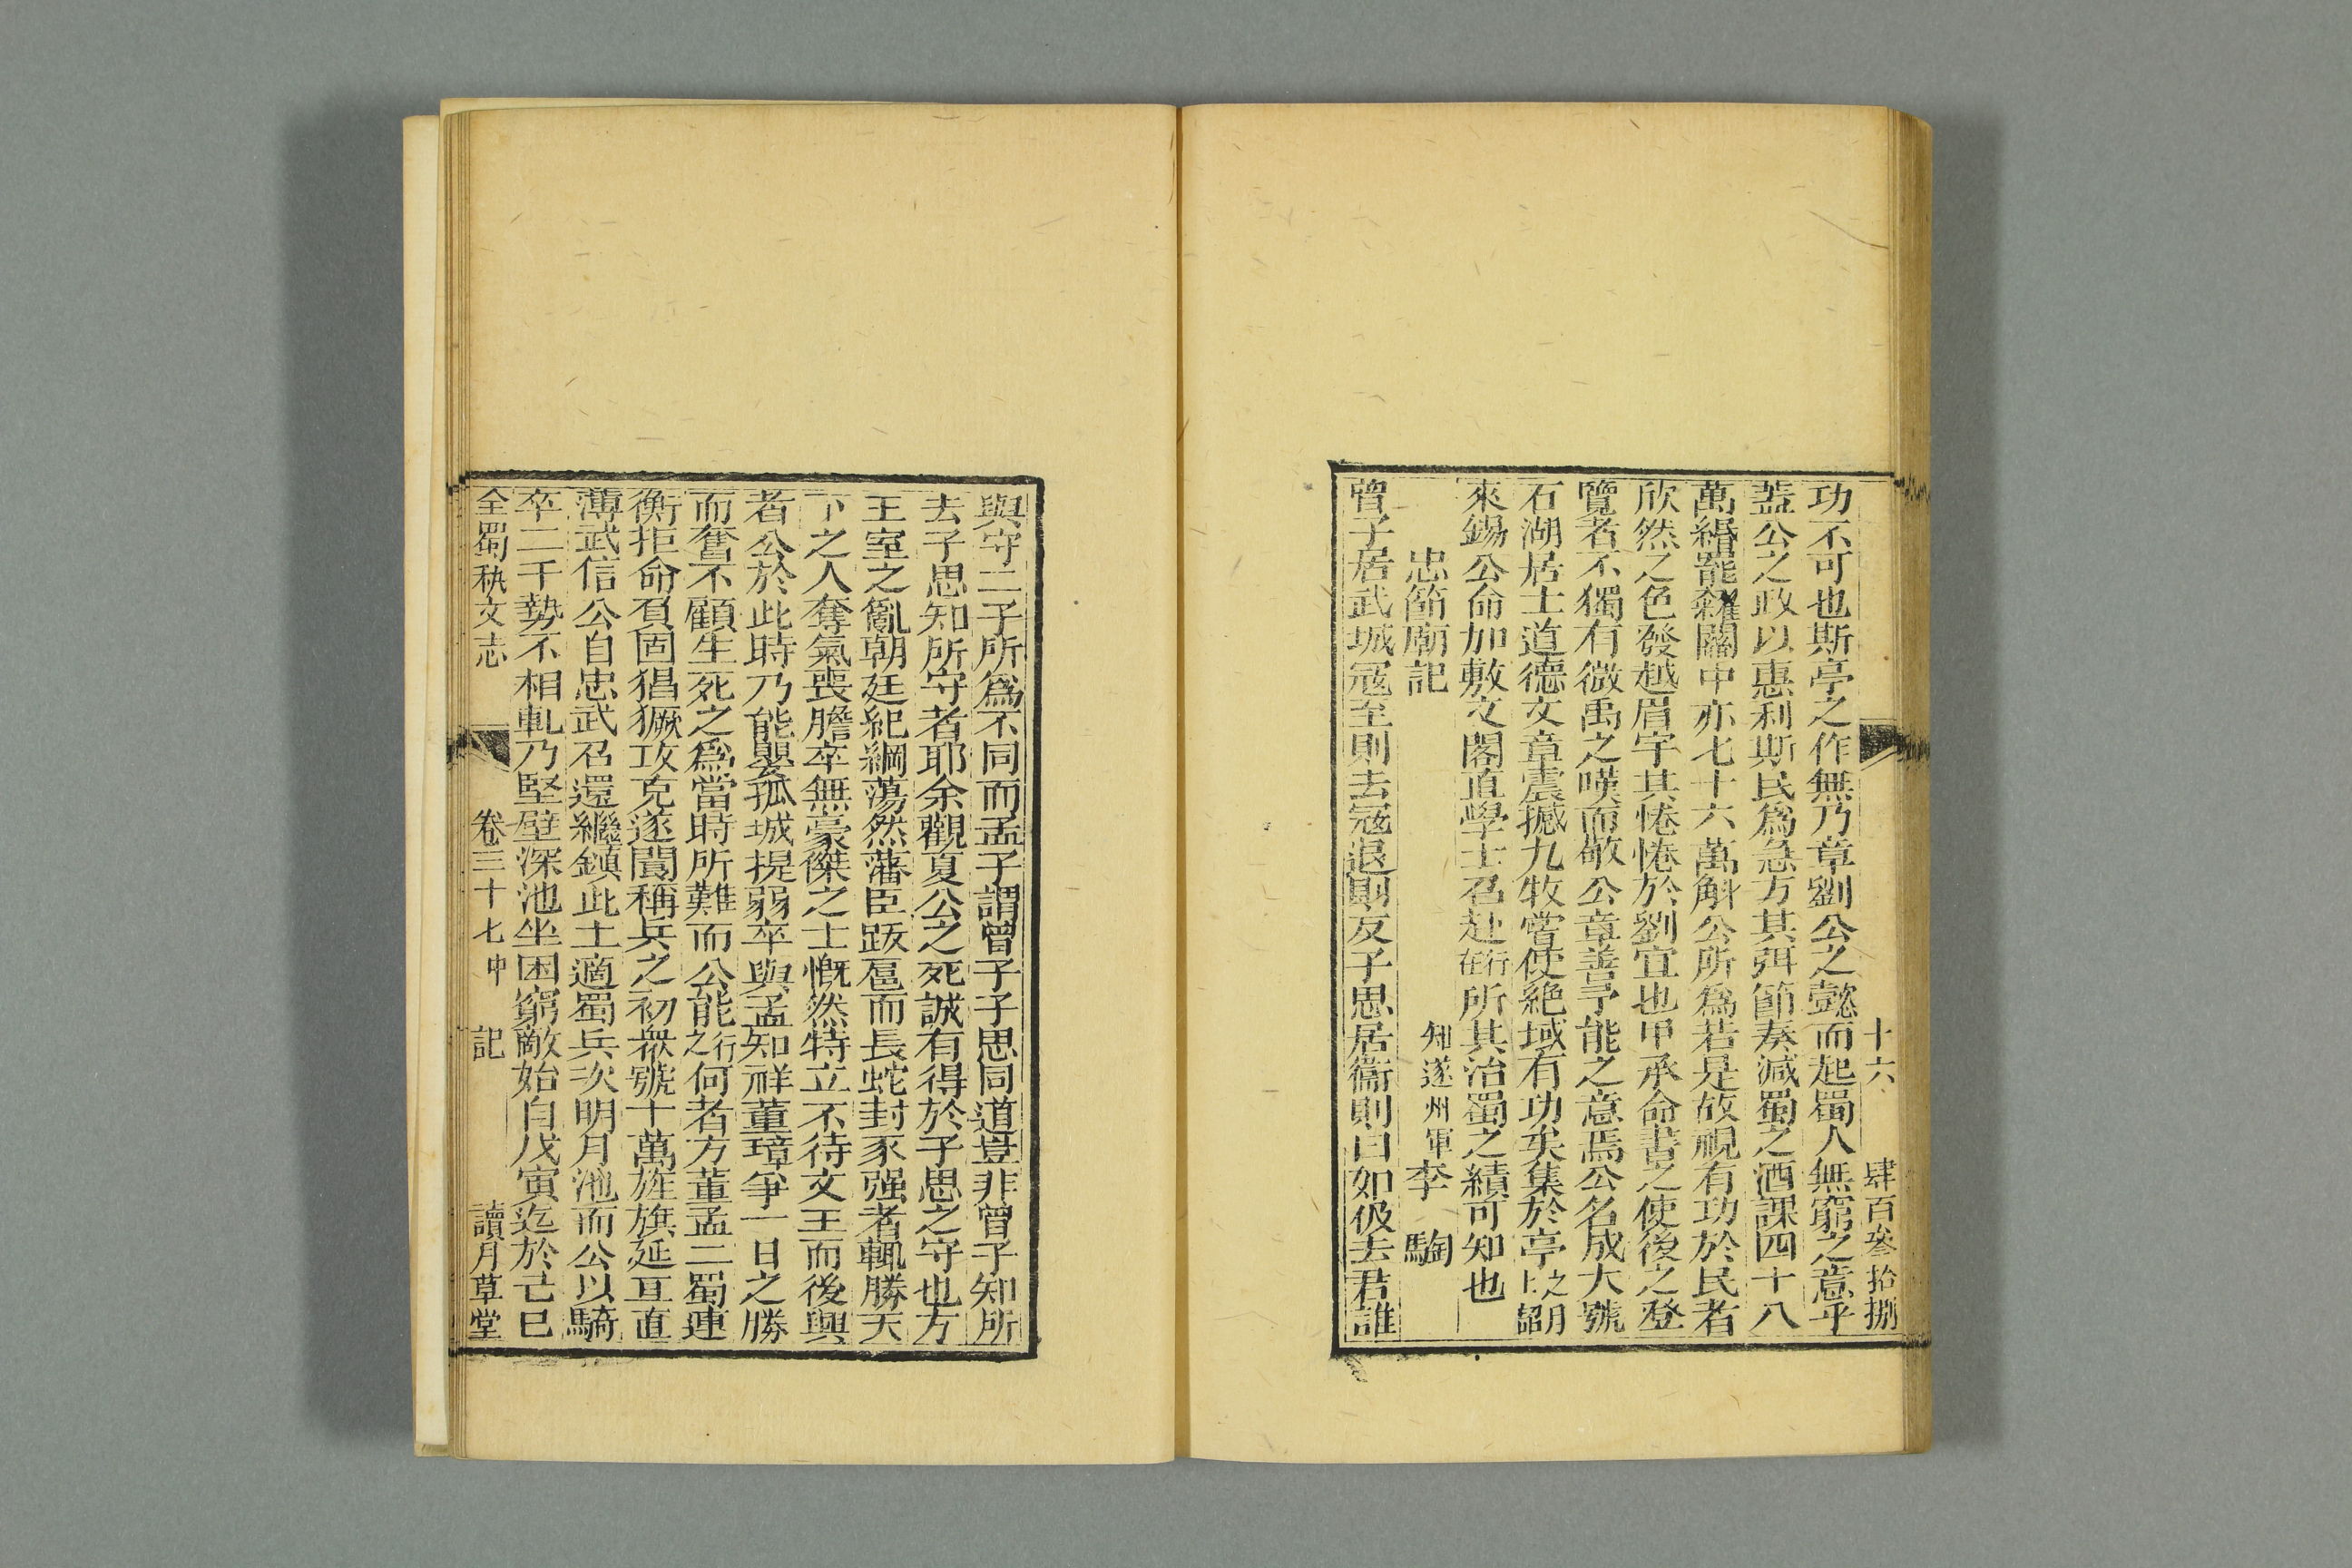 十六 肆百叄拾捌
功不可也斯亭之作無乃章劉公之懿而起蜀人無窮之意乎
葢公之政以惠利斯民爲急方其弭節奏減蜀之酒課四十八
萬緡罷糴關中亦七十六萬斛公所爲若是故視有功於民者
欣然之色發越眉宇其惓惓於劉宜也甲承命書之使後之登
覽者不獨有微禹之嘆而敬公章善予能之意焉公名成大號
石湖居士道德文章震撼九牧嘗使絶域有功矣集於亭之明上詔
來錫公命加敷文閣直學士召赴行在所其治蜀之績可知也
忠節廟記 知遂州軍李 騊
曾子居武城宼至則去宼退則反子思居衞則曰如伋去君誰
與守二子所爲不同而孟子謂曾子子思同道豈非曾子知所
去子思知所守者耶余觀夏公之死誠有得於子思之守也方
王室之亂朝廷紀綱蕩然藩臣䟦扈而長蛇封豕强者輒勝天
下之人奪氣喪膽卒無豪傑之士慨然特立不待文王而後興
者公於此時乃能嬰孤城提弱卒與孟知祥董璋爭一日之勝
而奮不顧生死之爲當時所難而公能行之何者方董孟二蜀連
衡拒命負固猖獗攻克遂閬稱兵之初衆號十萬旌旗延亘直
薄武信公自忠武召還繼鎮此土適蜀兵次明月池而公以騎
卒二千勢不相軋乃堅壁深池坐困窮敵始自戊寅迄於已巳
全蜀秇文志 卷三十七中 記 讀月草堂